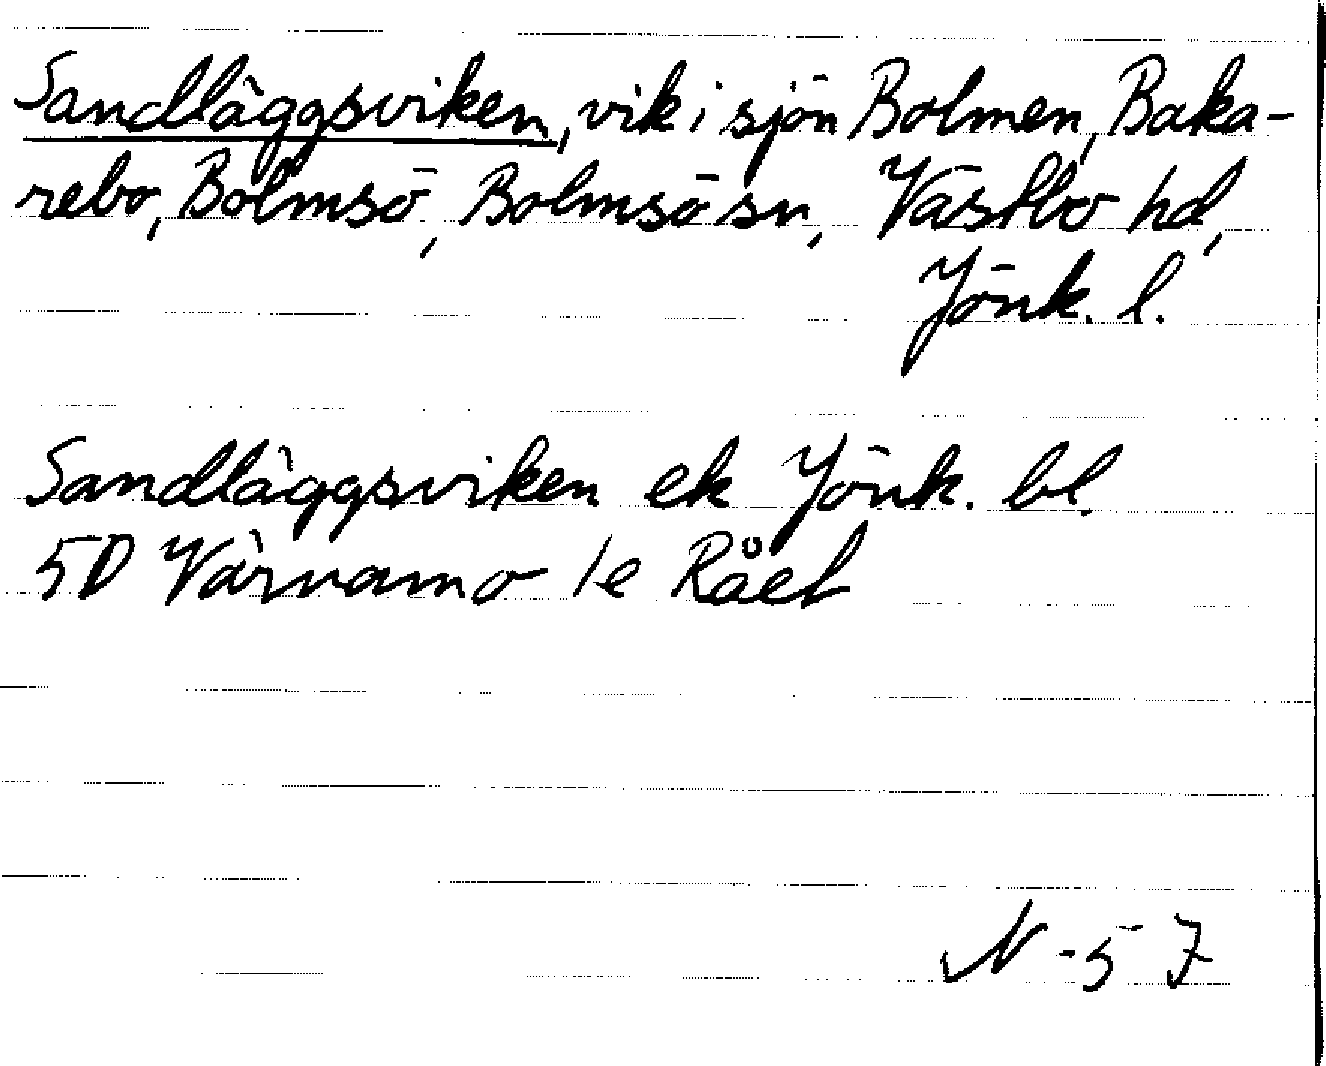 Sandläggsviken, vik i sjön Bolmen, Baka-
rebo, Bolmsö, Bolmsö sn, Västbo hd,
Jönk. l.
Sandläggsviken ek Jönk. bl.
5D Värnamo 1e Rået
N -57